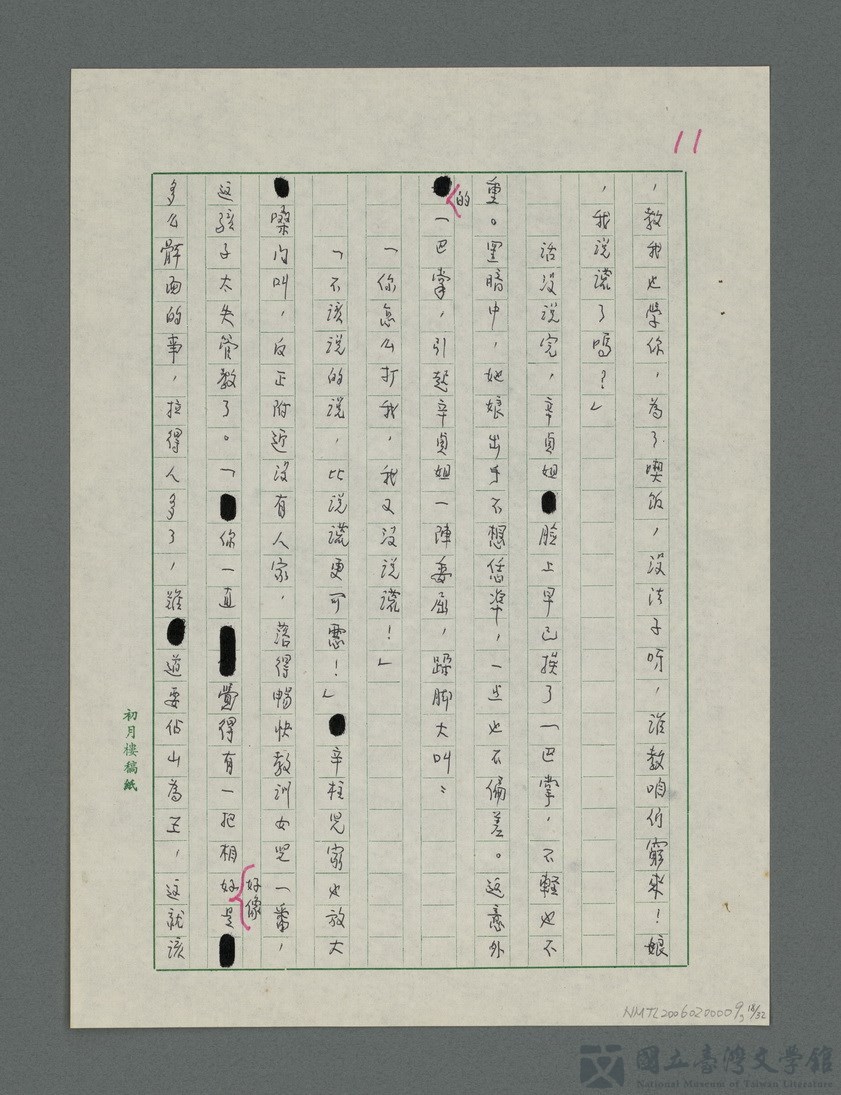 11
，教我也學你，為了喫飯，沒法子呀，誰教咱们窮來！娘
，我说謊了嗎？」
话沒说完，辛貞姐脸上早已挨了一巴掌，不輕也不
重。黑暗中，她娘出手不想恁準，一点也不偏差。这意外
的
一巴掌，引起辛貞姐一陣委屈，跺脚大叫：
「你怎么打我，我又沒说謊！」
「不该说的说，比说謊更可惡！」辛柱児家也放大
嗓门叫，反正附近沒有人家，落得暢快教训女児一番，
好像
这孩子太失管教了。「你一直覺得有一把相好是
多么骯面的事，拉得人多了，難道要佔山為王，这就该
初月樓稿紙
NMTL20060200009, 18/32
國立臺灣文學館
National Museum of Taiwan Literature